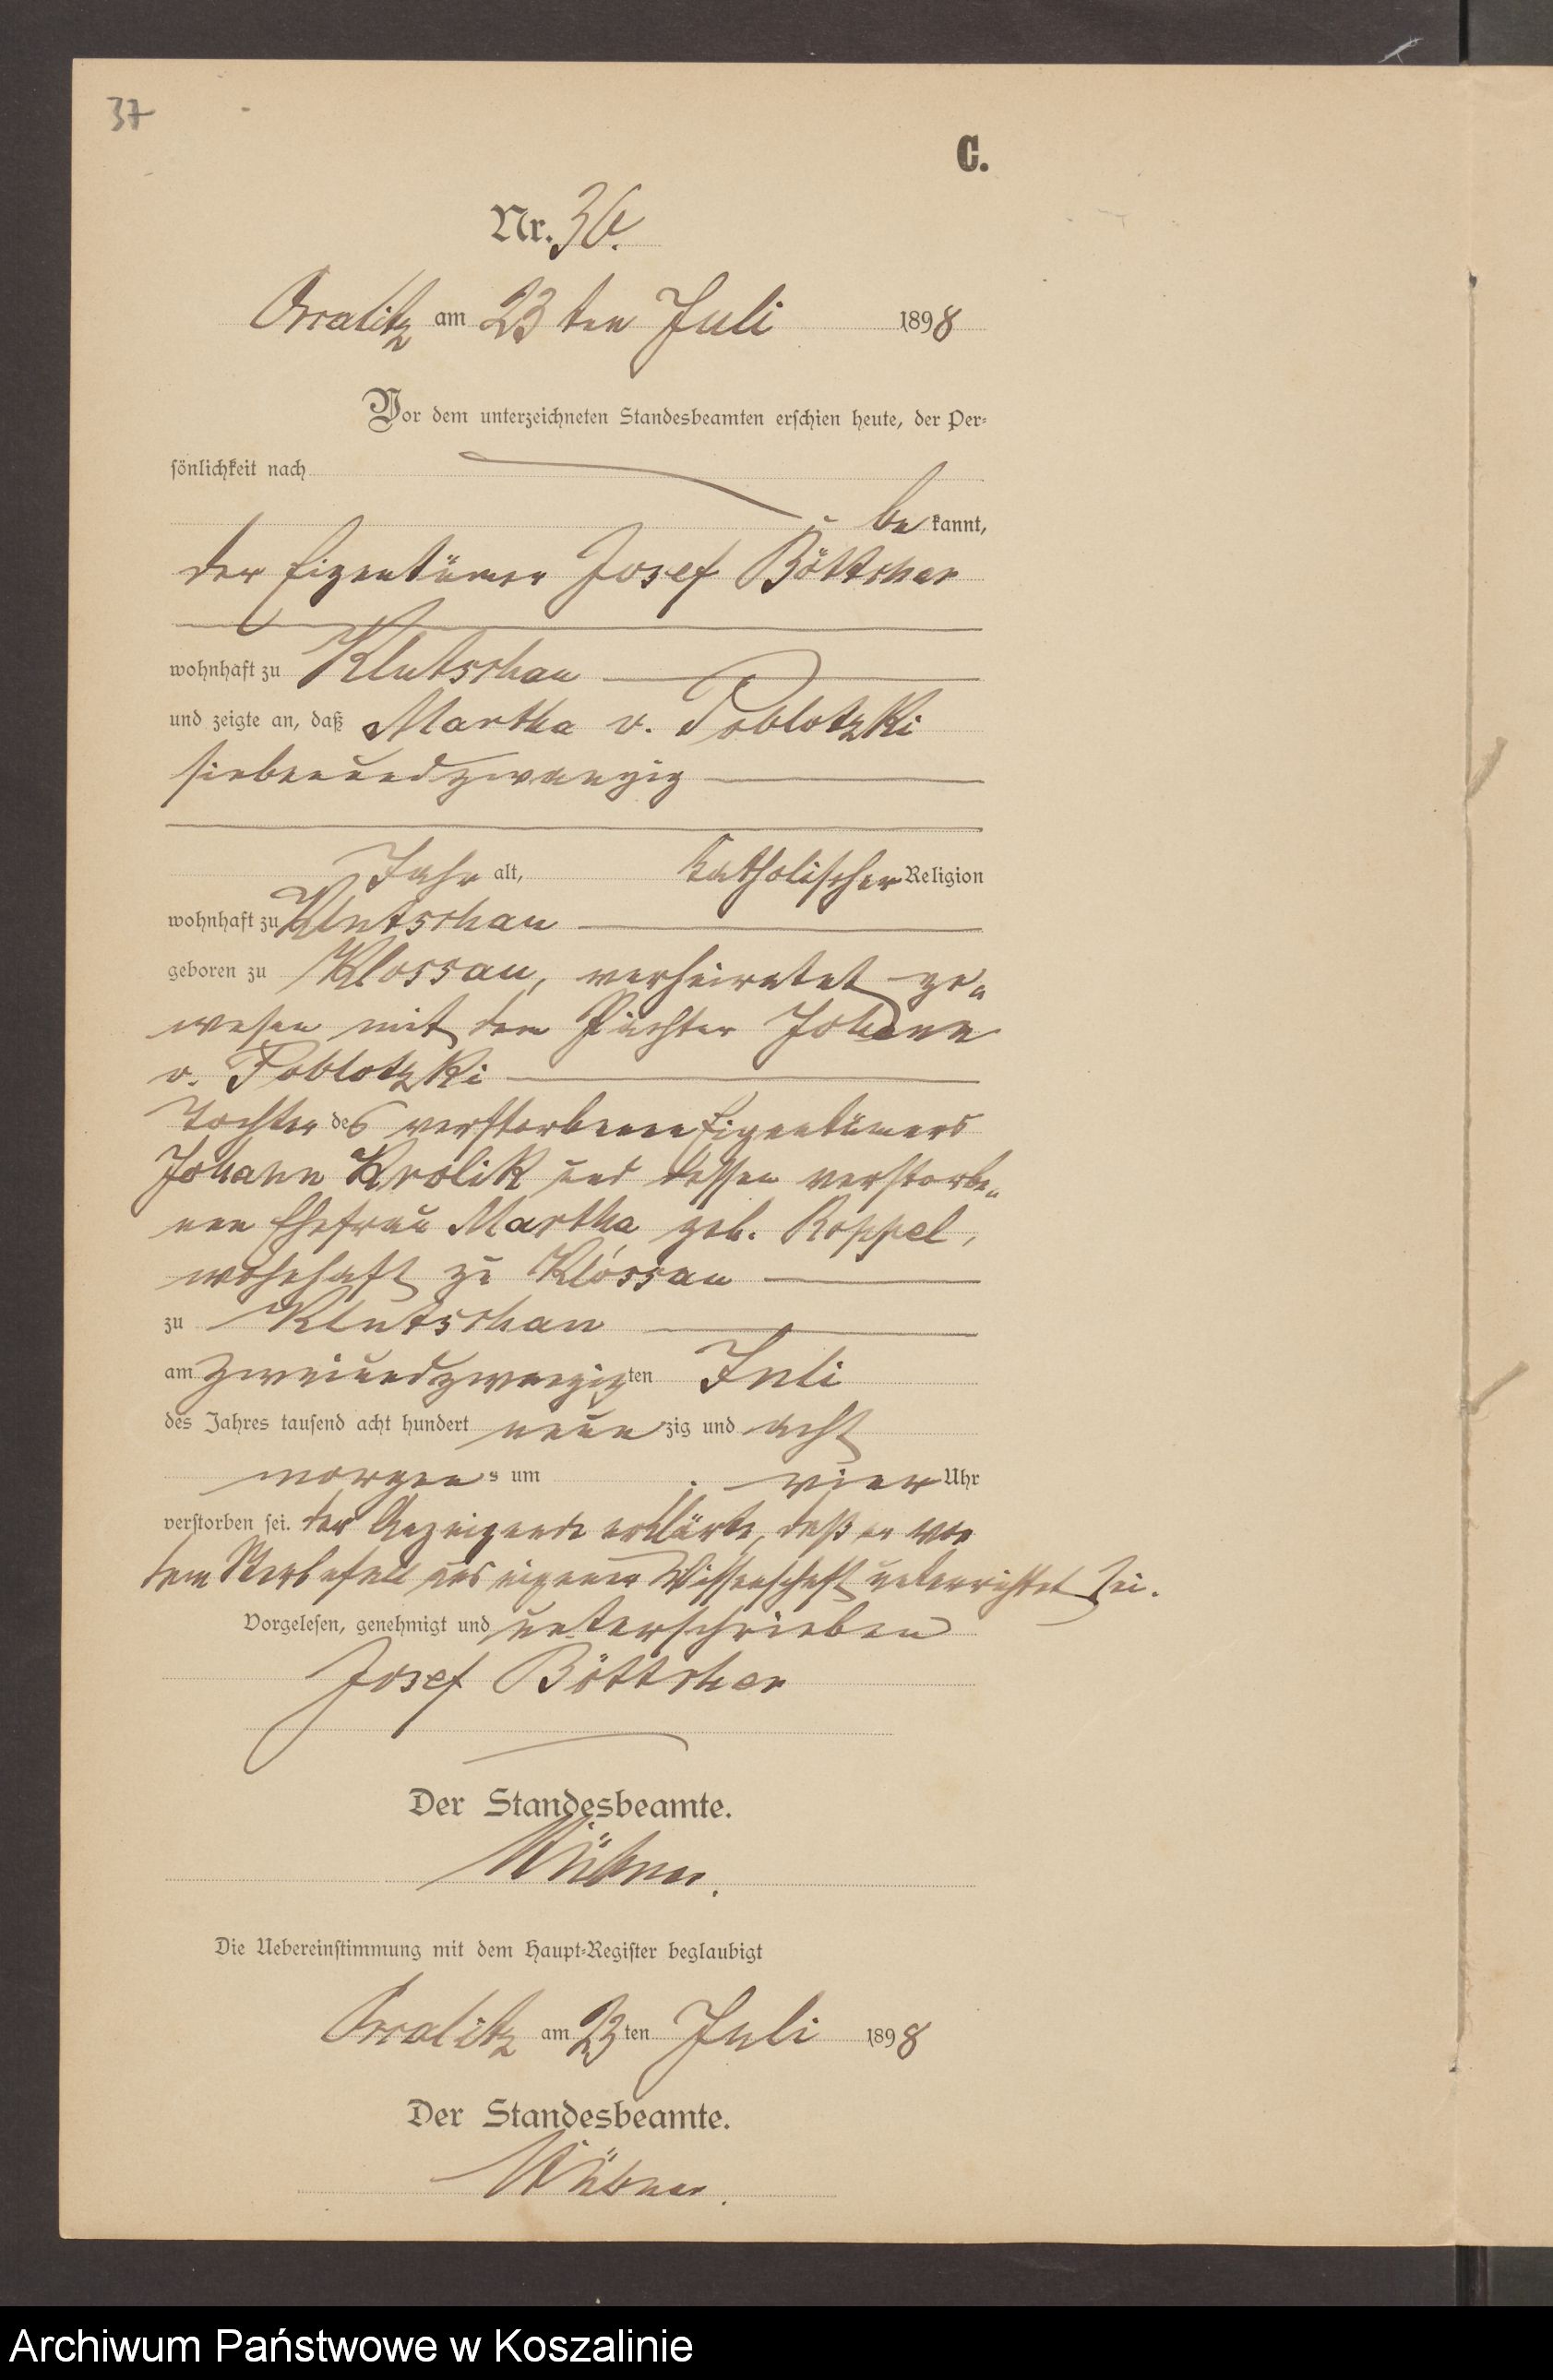 37
C.
Nr. 36.
Ossalitz am 23 ten Juli 1898
Vor dem unterzeichneten Standesbeamten erschien heute, der Per-
sönlichkeit nach
be kannt,
der Eigentümer Josef Böttcher
wohnhaft zu Klutschau
und zeigte an, daß Martha v. Poblotzki
siebenundzwanzig
Jahr alt, katholischer Religion
wohnhaft zu Klutschau
geboren zu Klossau, verheiratet ge-
wesen mit dem Pächter Johann
v. Poblotzki
Tochter des verstorbenen Eigentümers
Johann Krolik und dessen verstorbe-
nen Ehefrau Martha geb. Roppel,
wohnhaft zu Klossau
zu Klutschau
am zweiundzwanzigten Juli
des Jahres tausend acht hundert neun zig und acht
morgens um vier Uhr
verstorben sei. Der Anzeigende erklärte, daß er von
dem Sterbefall aus eigener Wissenschaft unterrichtet sei.
Vorgelesen, genehmigt und unterschrieben
Josef Böttcher
Der Standesbeamte.
Die Uebereinstimmung mit dem Haupt-Register beglaubigt
Ossalitz am 23 ten Juli 1898
Der Standesbeamte.
Archiwum Państwowe w Koszalinie